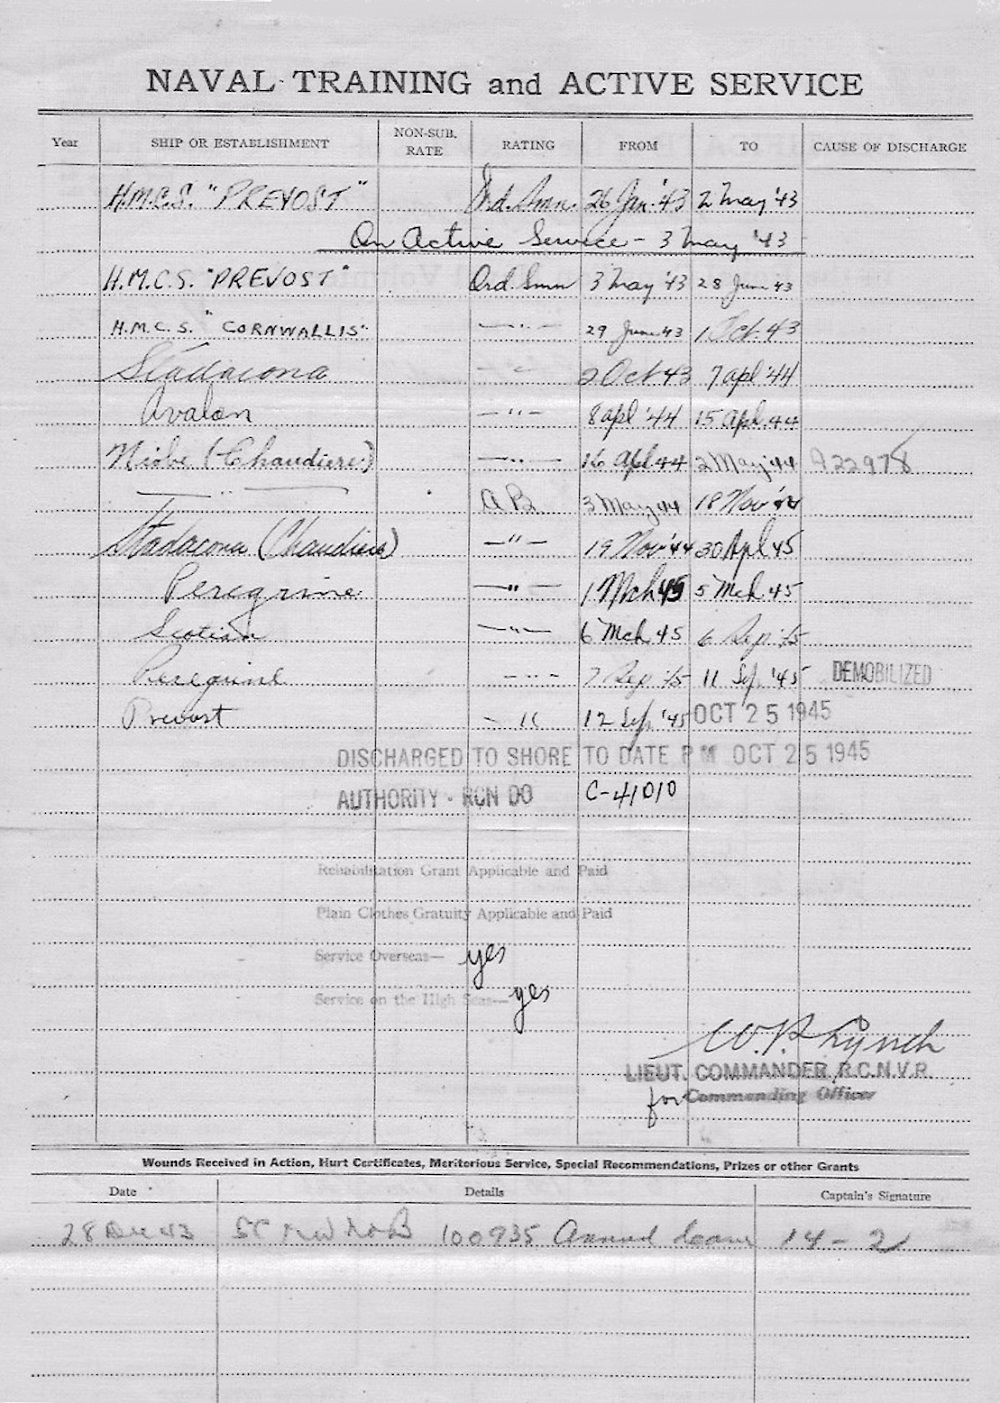 NAVAL TRAINING and ACTIVE SERVICE
Year SHIP OR ESTABLISHMENT NON-SUB. RATE RATING FROM TO CAUSE OF DISCHARGE
H.M.C.S. "PREVOST" Ord. Smn. 26 Jan. '43 2 May '43
On Active Service - 3 May '43
H.M.C.S. "PREVOST" Ord. Smn 3 May '43 28 June 43
H.M.C.S. "CORNWALLIS" —"— 29 June 43 1 Oct. 43
Stadacona —"— 2 Oct 43 7 apl '44
Avalon —"— 8 apl '44 15 Apl. 44
Niobe (Chaudiere) —"— 16 Apl 44 2 May '44 A22978
—"— A B 3 May 44 18 Nov '44
Stadacona (Chaudiere) —"— 19 Nov '44 30 Apl 45
Peregrine —"— 1 Mch 45 5 Mch 45
Scotian —"— 6 Mch 45 6 Sep 45
Peregrine —"— 7 Sep 45 11 Sep. '45 DEMOBILIZED
Prevost — " 12 Sep. '45 OCT 25 1945
DISCHARGED TO SHORE TO DATE PM OCT 25 1945
AUTHORITY - RCN DO C-41010
Rehabilitation Grant Applicable and Paid
Plain Clothes Gratuity Applicable and Paid
Service Overseas— yes
Service on the High Seas— yes
W.P. Lynch
LIEUT. COMMANDER, R.C.N.V.R.
for Commanding Officer
Wounds Received in Action, Hurt Certificates, Meritorious Service, Special Recommendations, Prizes or other Grants
Date Details Captain's Signature
28 Dec 43 100935 Annual Leave 14 - 2